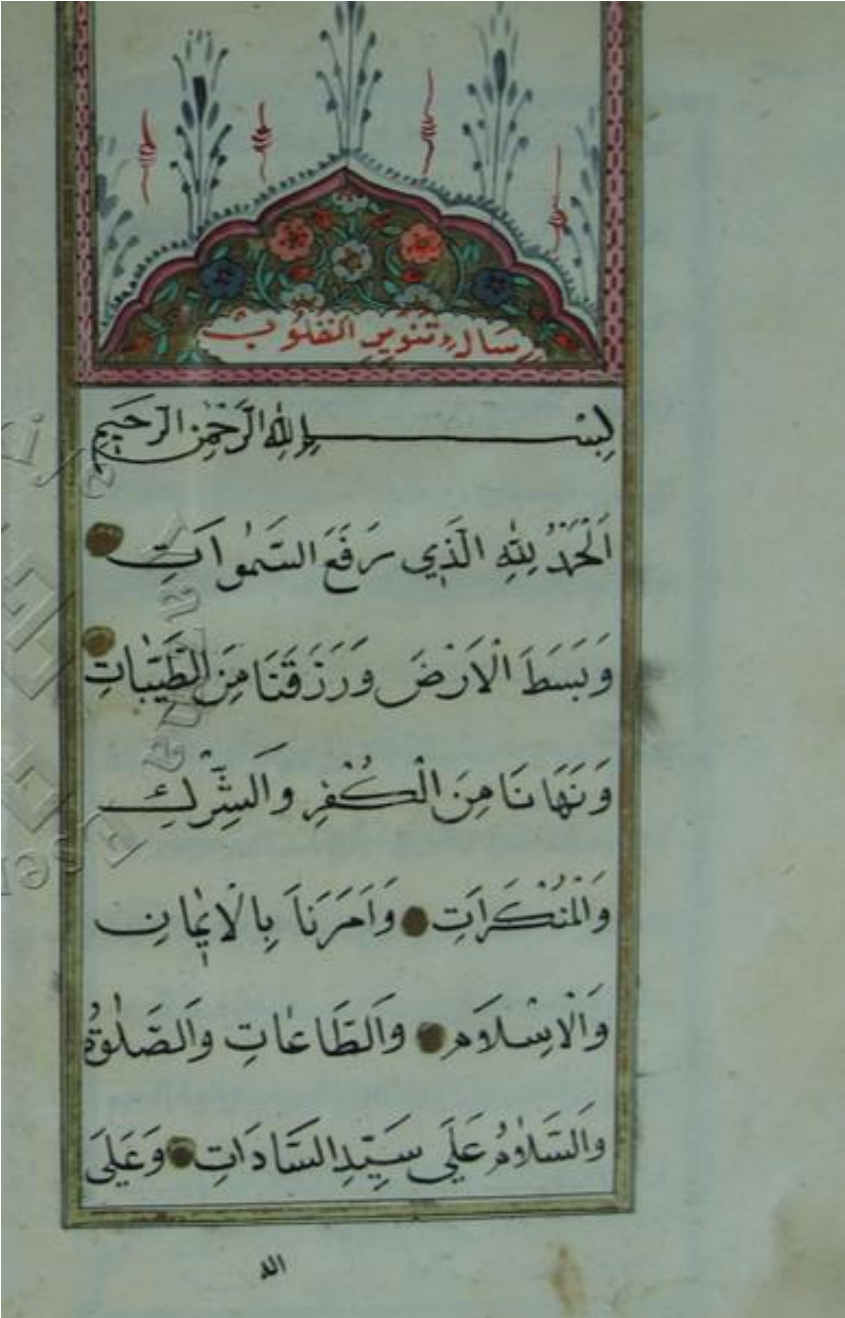 رسالهٔ تنوير القلوب
بِسْمِ اللهِ الرَّحْمٰنِ الرَّحِيمِ
اَلْحَمْدُ لِلّٰهِ الَّذِي رَفَعَ السَّمٰوَاتِ
وَبَسَطَ الْاَرْضَ وَرَزَقَنَا مِنَ الطَّيِّبَاتِ
وَنَهَانَا مِنَ الْكُفْرِ وَالشِّرْكِ
وَالْمُنْكَرَاتِ وَاَمَرَنَا بِالْاِيمَانِ
وَالْاِسْلَامِ وَالطَّاعَاتِ وَالصَّلٰوةُ
وَالسَّلَامُ عَلَى سَيِّدِ السَّادَاتِ وَعَلَى